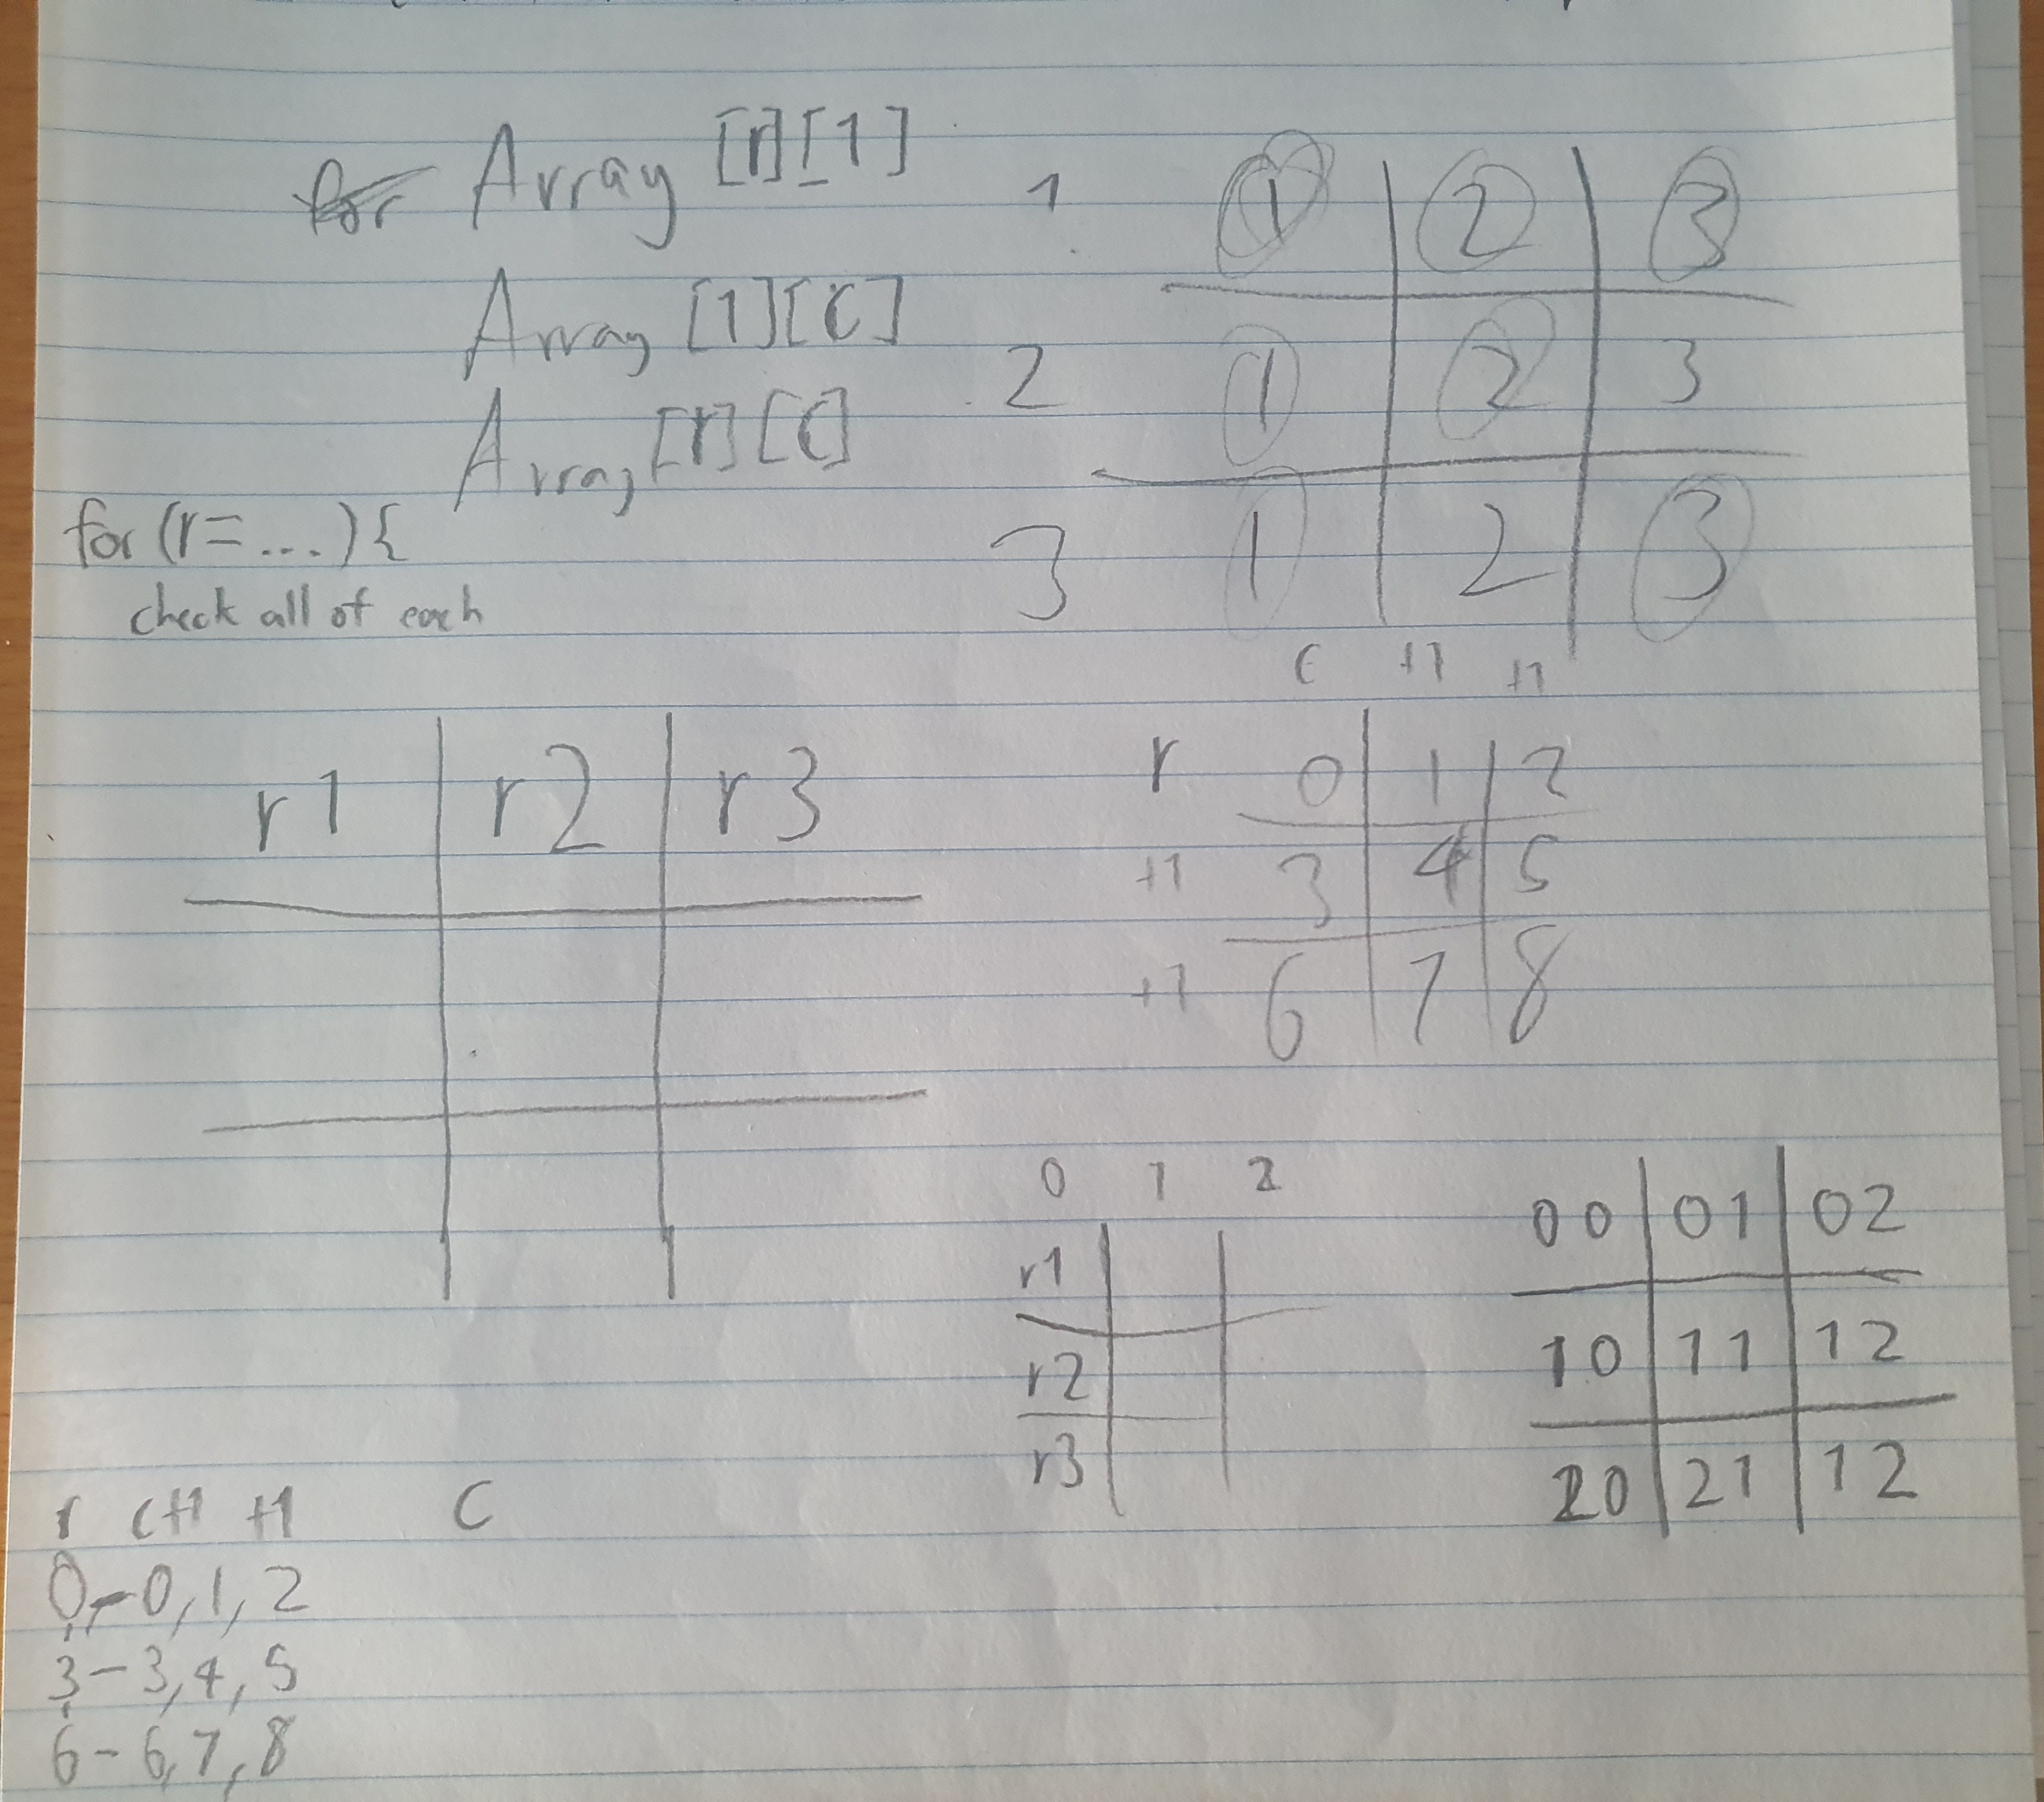 for Array [r][1]
Array [1][C]
Array [r][C]
for (r= ...) {
check all of each
1 1 2 3
2 1 2 3
3 1 2 3
r1 r2 r3
C +1 +1
r 0 1 2
+1 3 4 5
+1 6 7 8
0 1 2
r1
r2
r3
00 01 02
10 11 12
20 21 12
r C+1 +1 C
0-0,1,2
3-3,4,5
6-6,7,8